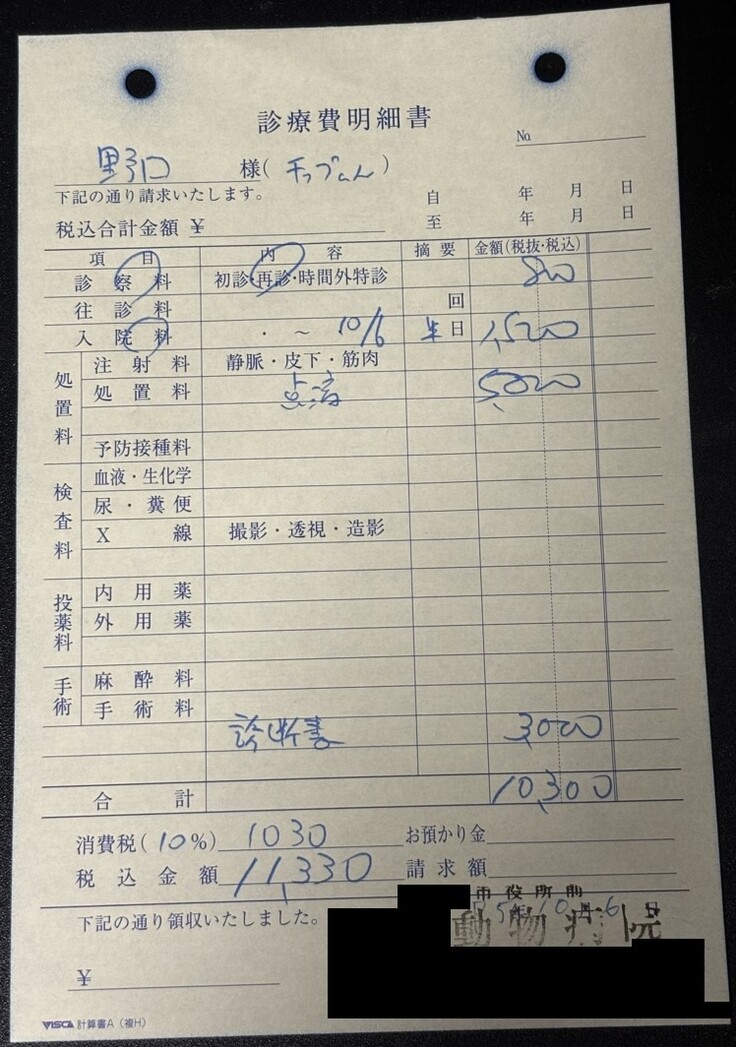 診療費明細書
No.
野口 様(チップくん)
下記の通り請求いたします。
自 年 月 日
税込合計金額 ¥
至 年 月 日
項目 内容 摘要 金額(税抜・税込)
診察料 初診・再診・時間外特診 800
往診料 回
入院料 ・ ～ 10/6 半日 1,500
処置料
注射料 静脈・皮下・筋肉
処置料 点滴 5,000
予防接種料
検査料
血液・生化学
尿・糞便
X線 撮影・透視・造影
投薬料
内用薬
外用薬
手術
麻酔料
手術料
診断書 3,000
合計 10,300
消費税(10%) 1030 お預かり金
税込金額 11,330 請求額
市役所前
下記の通り領収いたしました。
5年10月6日
動物病院
¥
VISCA 計算書A(複H)